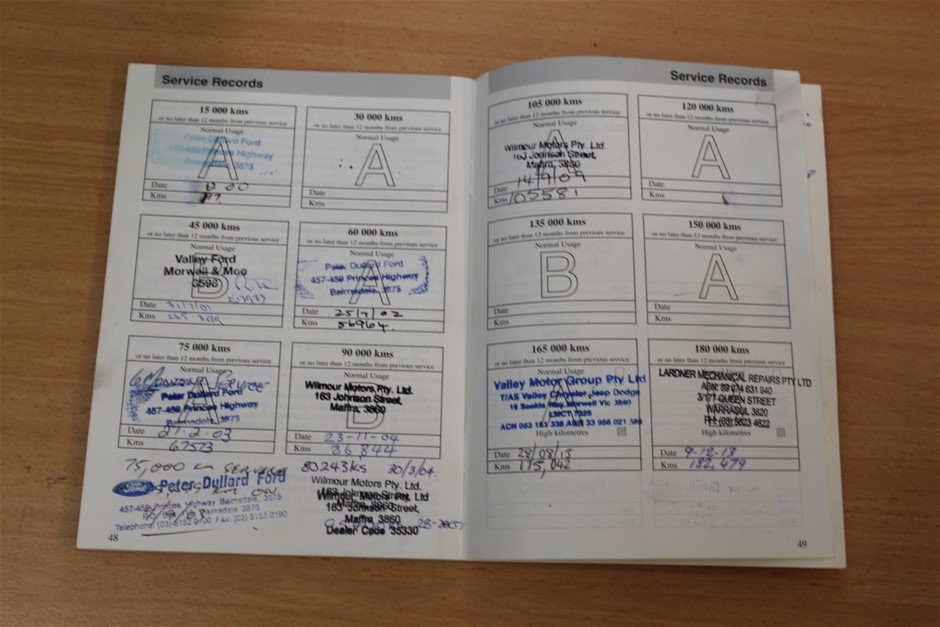 Service Records
15 000 kms
or no later than 12 months from previous service
Normal Usage
A
Peter Dullard Ford
457-459 Princes Highway
Bairnsdale, 3875
Date
Kms
30 000 kms
or no later than 12 months from previous service
Normal Usage
A
Date
Kms
45 000 kms
or no later than 12 months from previous service
Normal Usage
B
Valley Ford
Morwell & Moe
Date 31/7/01
Kms
60 000 kms
or no later than 12 months from previous service
Normal Usage
A
Peter Dullard Ford
457-459 Princes Highway
Bairnsdale, 3875
Date 25/7/02
Kms 56964
75 000 kms
or no later than 12 months from previous service
6 Monthly Service
A
Peter Dullard Ford
457-459 Princes Highway
Bairnsdale, 3875
Date 27-2-03
Kms 67523
90 000 kms
or no later than 12 months from previous service
Normal Usage
B
Wilmour Motors Pty. Ltd.
163 Johnson Street,
Maffra, 3860
Date 23-11-04
Kms 86844
75,000 km SERVICE
Ford Peter Dullard Ford
457-459 Princes Highway Bairnsdale, 3875
Bairnsdale 3875
Telephone: (03) 5152 0700 Fax: (03) 5152 0190
80243ks 20/3/04
Wilmour Motors Pty. Ltd.
163 Johnson Street,
Maffra, 3860
Wilmour Motors Pty. Ltd.
163 Johnson Street,
Maffra, 3860
28-2007
Dealer Code 35330
48
Service Records
105 000 kms
or no later than 12 months from previous service
Normal Usage
A
Wilmour Motors Pty. Ltd.
163 Johnson Street,
Maffra, 3860
Date 14/9/09
Kms 105581
120 000 kms
or no later than 12 months from previous service
Normal Usage
A
Date
Kms
135 000 kms
or no later than 12 months from previous service
Normal Usage
B
Date
Kms
150 000 kms
or no later than 12 months from previous service
Normal Usage
A
Date
Kms
165 000 kms
or no later than 12 months from previous service
A
Valley Motor Group Pty Ltd
T/AS Valley Chrysler Jeep Dodge
LMCT 7325
High kilometres
Date 28/08/13
Kms 175,042
180 000 kms
or no later than 12 months from previous service
LARDNER MECHANICAL REPAIRS PTY LTD
ABN: 89 074 631 940
3/177 QUEEN STREET
WARRAGUL 3820
PH: (03) 5623 4622
High kilometres
Date 9-12-13
Kms 182,479
49